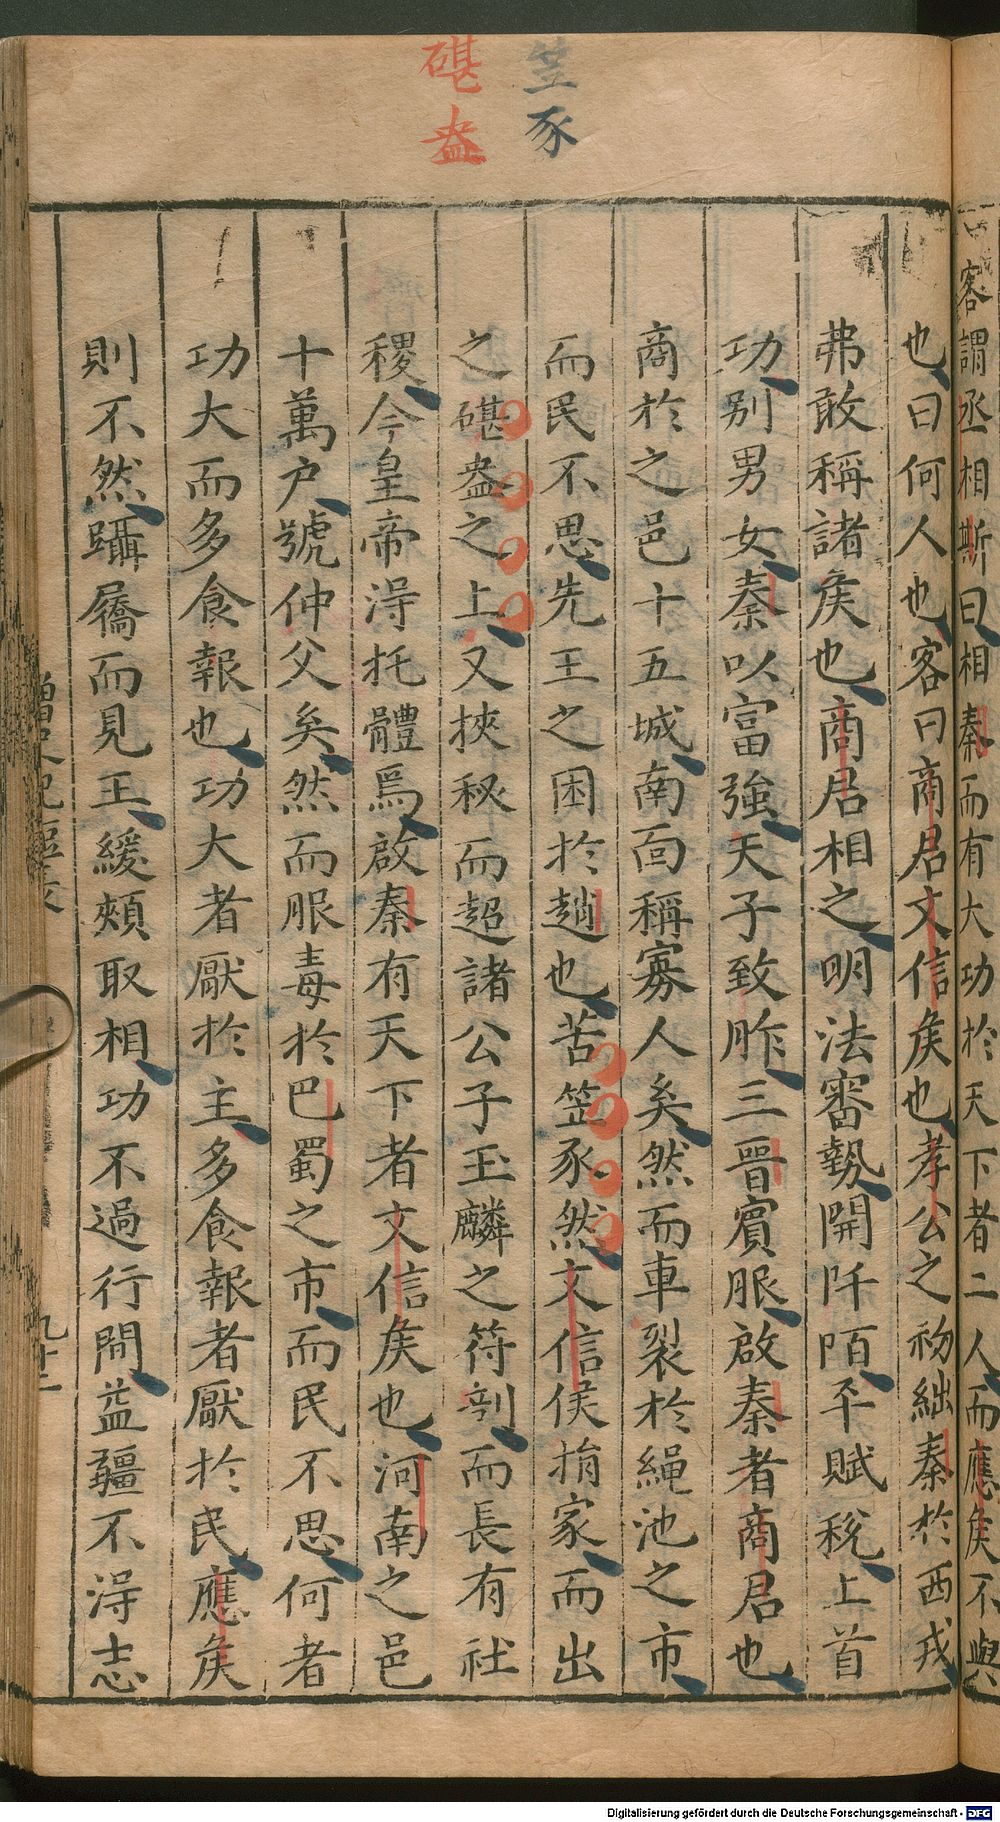 客謂丞相斯曰相秦而有大功於天下者二人而應矦不與
笠豖
碪盎
也曰何人也客曰商君文信矦也孝公之初絀秦於西戎
弗敢稱諸矦也商君相之明法審勢開阡陌平賦稅上首
功別男女秦以富強天子致胙三晉賓服啟秦者商君也
商於之邑十五城南面稱寡人矣然而車裂於繩池之市
而民不思先王之困於趙也苦笠豖然文信侯捐家而出
之碪盎之上又挾秘而超諸公子玉麟之符剖而長有社
稷今皇帝淂托體焉啟秦有天下者文信矦也河南之邑
十萬户號仲父矣然而服毒於巴蜀之市而民不思何者
功大而多食報也功大者厭於主多食報者厭於民應矦
則不然躡屩而見王緩頰取相功不過行間益疆不淂志
九十二
Digitalisierung gefördert durch die Deutsche Forschungsgemeinschaft - DFG